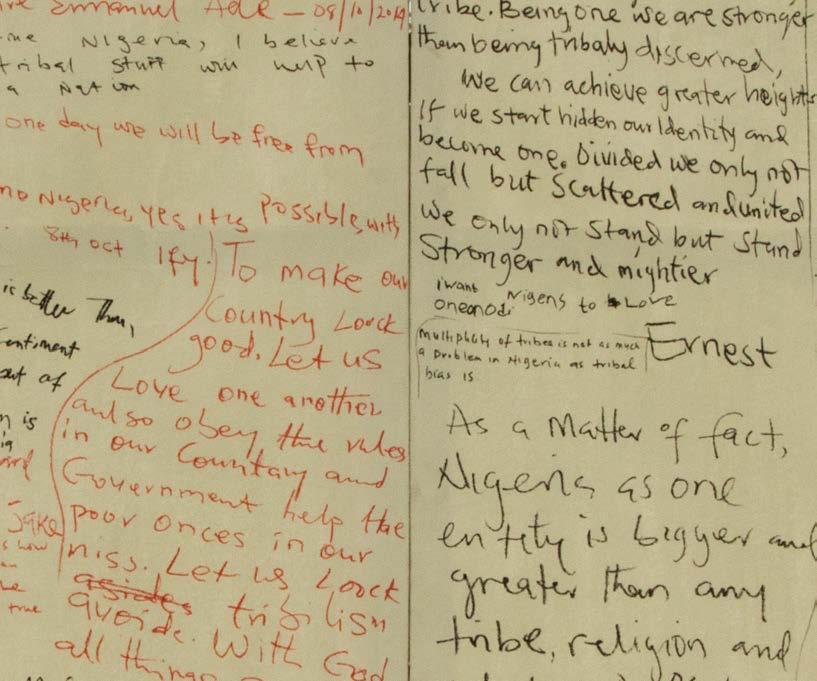 Emmanuel Ade - 08/10/2019
Nigeria, I believe
tribal stuff will help to
a Nation
one day we will be free from
no Nigeria, yes it is possible, with
8th Oct Ify.
is better than,
sentiment
out of
is
Jake
true
To make our
Country Loock
good. Let us
Love one another
and so obey the rules
in our Countary and
Government help the
poor onces in our
niss. Let us Loock
avoide. tribilism
With God
all things
tribe. Being one we are stronger
than being tribaly discerned,
We can achieve greater heights
If we start hidden our Identity and
become one. Divided we only not
fall but scattered and united
we only not stand but stand
Stronger and mightier
i want Nigens to Love
oneanodi
Ernest
Multiplicity of tribes is not as much
a problem in Nigeria as tribal
bias is
As a Matter of fact,
Nigeria as one
entity is bigger and
greater than any
tribe, religion and